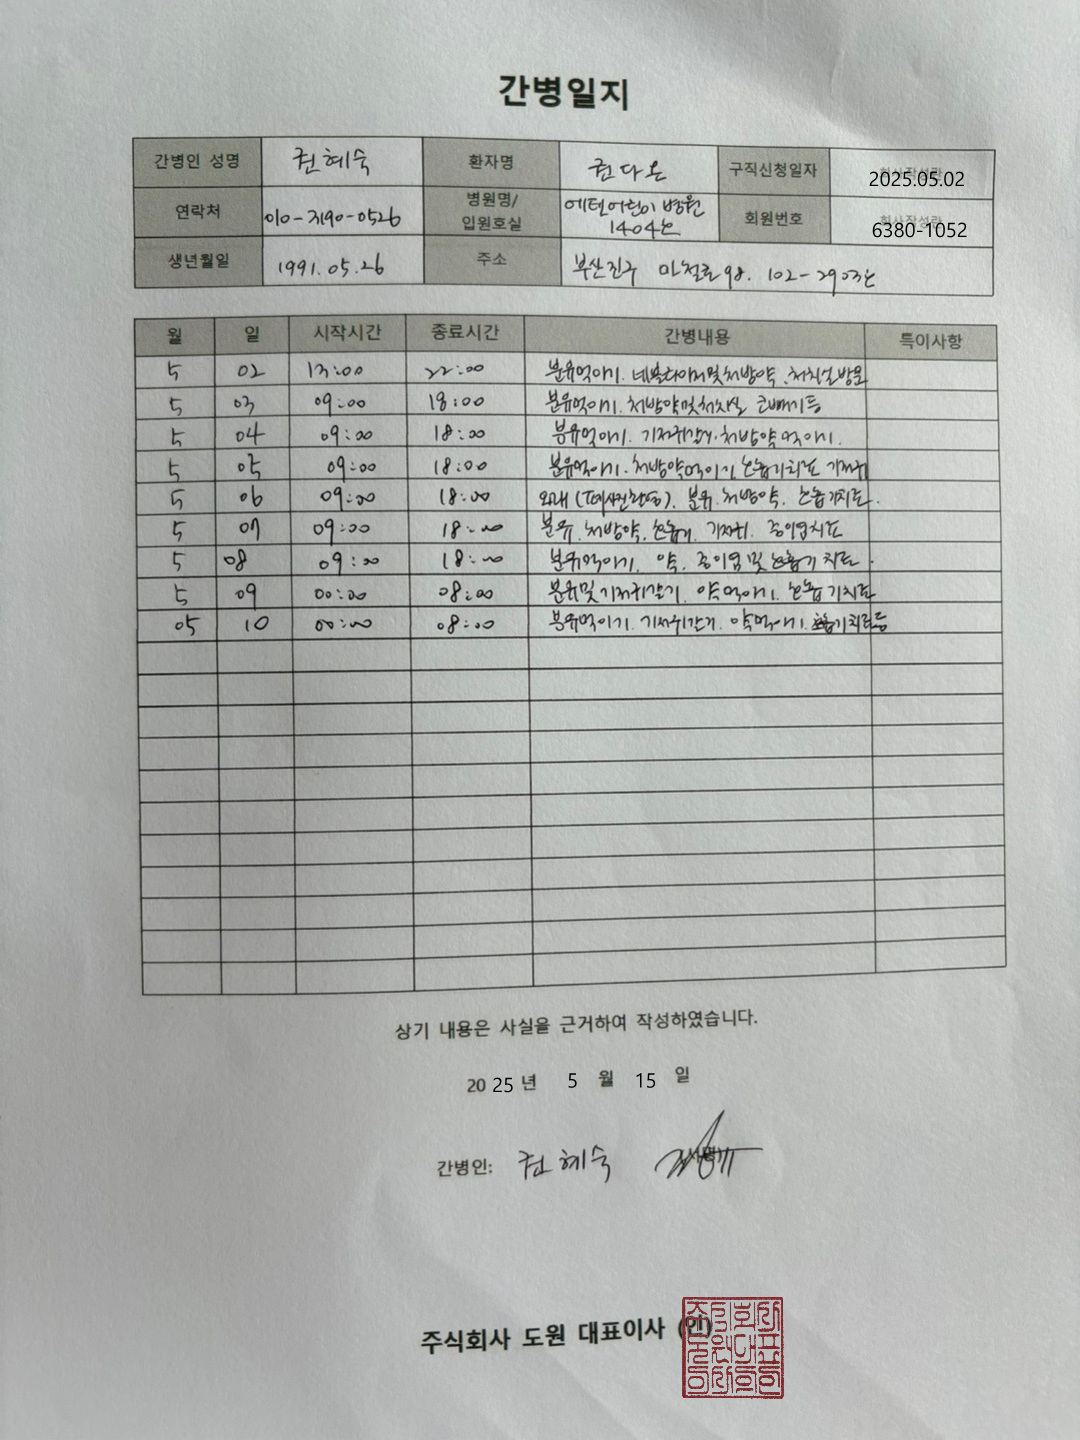 간병일지
간병인 성명 권혜숙 환자명 권다온 구직신청일자 2025.05.02
연락처 010-3190-0526 병원명/입원호실 어린이 병원 1404호 회원번호 6380-1052
생년월일 1991.05.26 주소 부산진구 98. 102-2903호
월 일 시작시간 종료시간 간병내용 특이사항
5 02 13:00 22:00 분유먹이기. 네블라이저및처방약. 처치실방문
5 03 09:00 18:00 분유먹이기. 처방약및처치실 코빼기등
5 04 09:00 18:00 분유먹이기. 기저귀갈기. 처방약먹이기.
5 05 09:00 18:00 분유먹이기. 처방약먹이기. 기저귀
5 06 09:00 18:00 외래 분유. 처방약.
5 07 09:00 18:00 분유. 처방약. 기저귀. 중이염치료
5 08 09:00 18:00 분유먹이기. 약. 중이염 및 치료.
5 09 00:00 08:00 분유및기저귀갈기. 약먹이기.
05 10 00:00 08:00 분유먹이기. 기저귀갈기. 약먹이기.
상기 내용은 사실을 근거하여 작성하였습니다.
2025 년 5 월 15 일
간병인: 권혜숙
주식회사 도원 대표이사 (인)